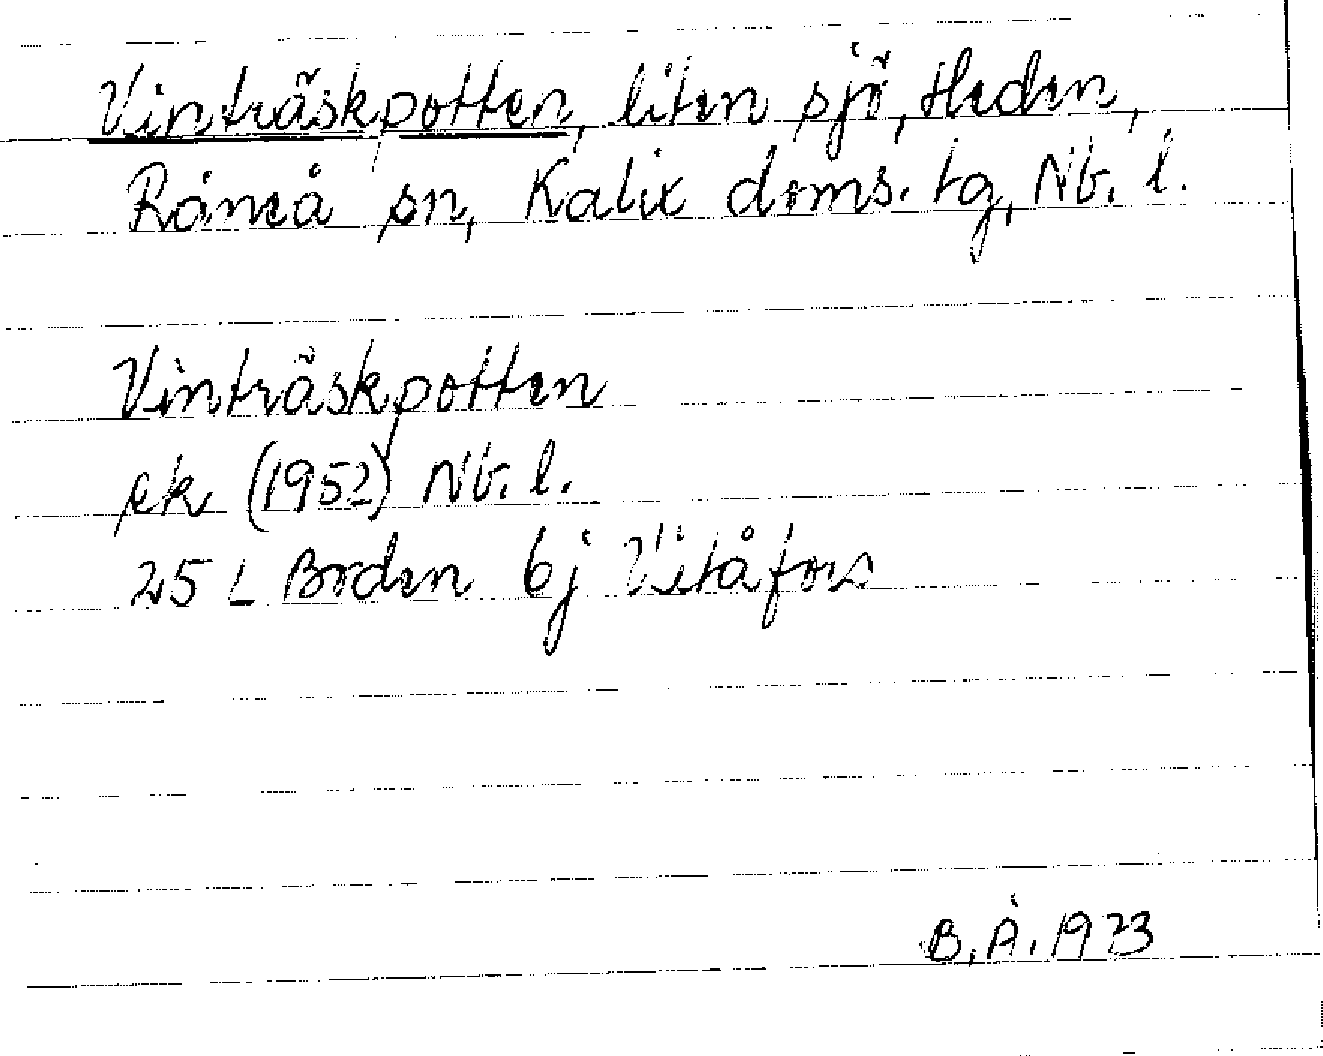 Vinträskpotten, liten sjö, Heden,
Råneå sn, Kalix doms. tg, Nb. l.
Vinträskpotten
ek. (1952) Nb. l.
25 L Boden 6j Vitåfors
B. Å. 1973